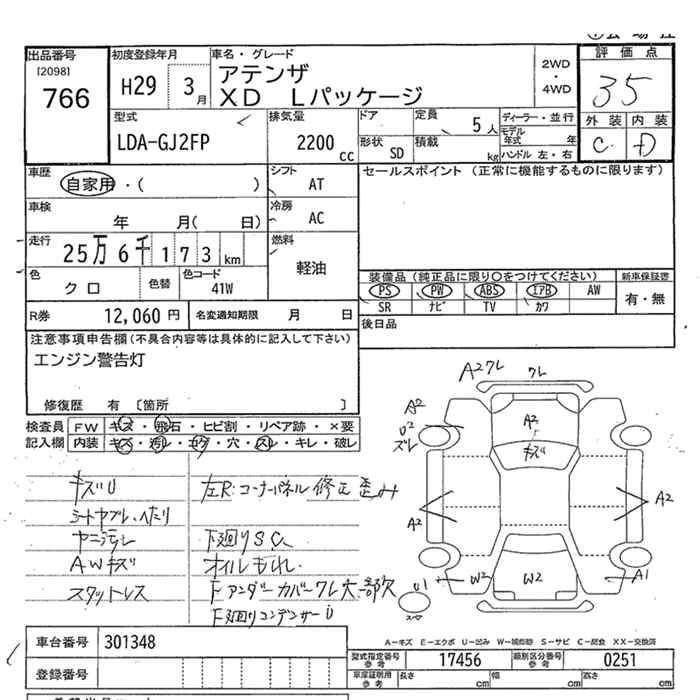 出品番号 初度登録年月 車名・グレード 2WD・4WD 評価点
[2098]
766 H29 3月 アテンザ 35
XD Lパッケージ
型式 排気量 ドア 定員 5人 ディーラー・並行 外装 内装
LDA-GJ2FP 2200cc 形状 SD 積載 kg モデル年式 年 C D
ハンドル 左・右
車歴 シフト セールスポイント (正常に機能するものに限ります)
自家用・( ) AT
車検 冷房
年 月( 日) AC
走行 燃料
25万6千173km 軽油 装備品 (純正品に限り○をつけてください) 新車保証書
色 色替 色コード PS PW ABS エアB AW 有・無
クロ 41W SR ナビ TV カワ
R券 12,060円 名変通知期限 月 日 後日品
注意事項申告欄 (不具合内容等は具体的に記入して下さい)
エンジン警告灯
修復歴 有 [箇所 ]
検査員 FW キズ・飛石・ヒビ割・リペア跡・×要
記入欄 内装 キズ・汚レ・コゲ・穴・スレ・キレ・破レ
キズU 左R:コーナーパネル修正歪み
シートヤブレ、ヘたり
ヤニ汚レ 下廻りSC、
AWキズ オイルもれ.
スタットレス Fアンダーカバークレ大一部欠
F下廻りコンデンサーU
A2クレ クレ
A2 A2
U2 キズ
ズレ
A2 A2
U1 W2 W2 A1
スペア
A-キズ E-エクボ U-凹み W-補修跡 S-サビ C-腐食 XX-交換済
車台番号 301348 型式指定番号 参考 17456 類別区分番号 参考 0251
登録番号 車庫証明用 参考 長さ cm 幅 cm 高さ cm